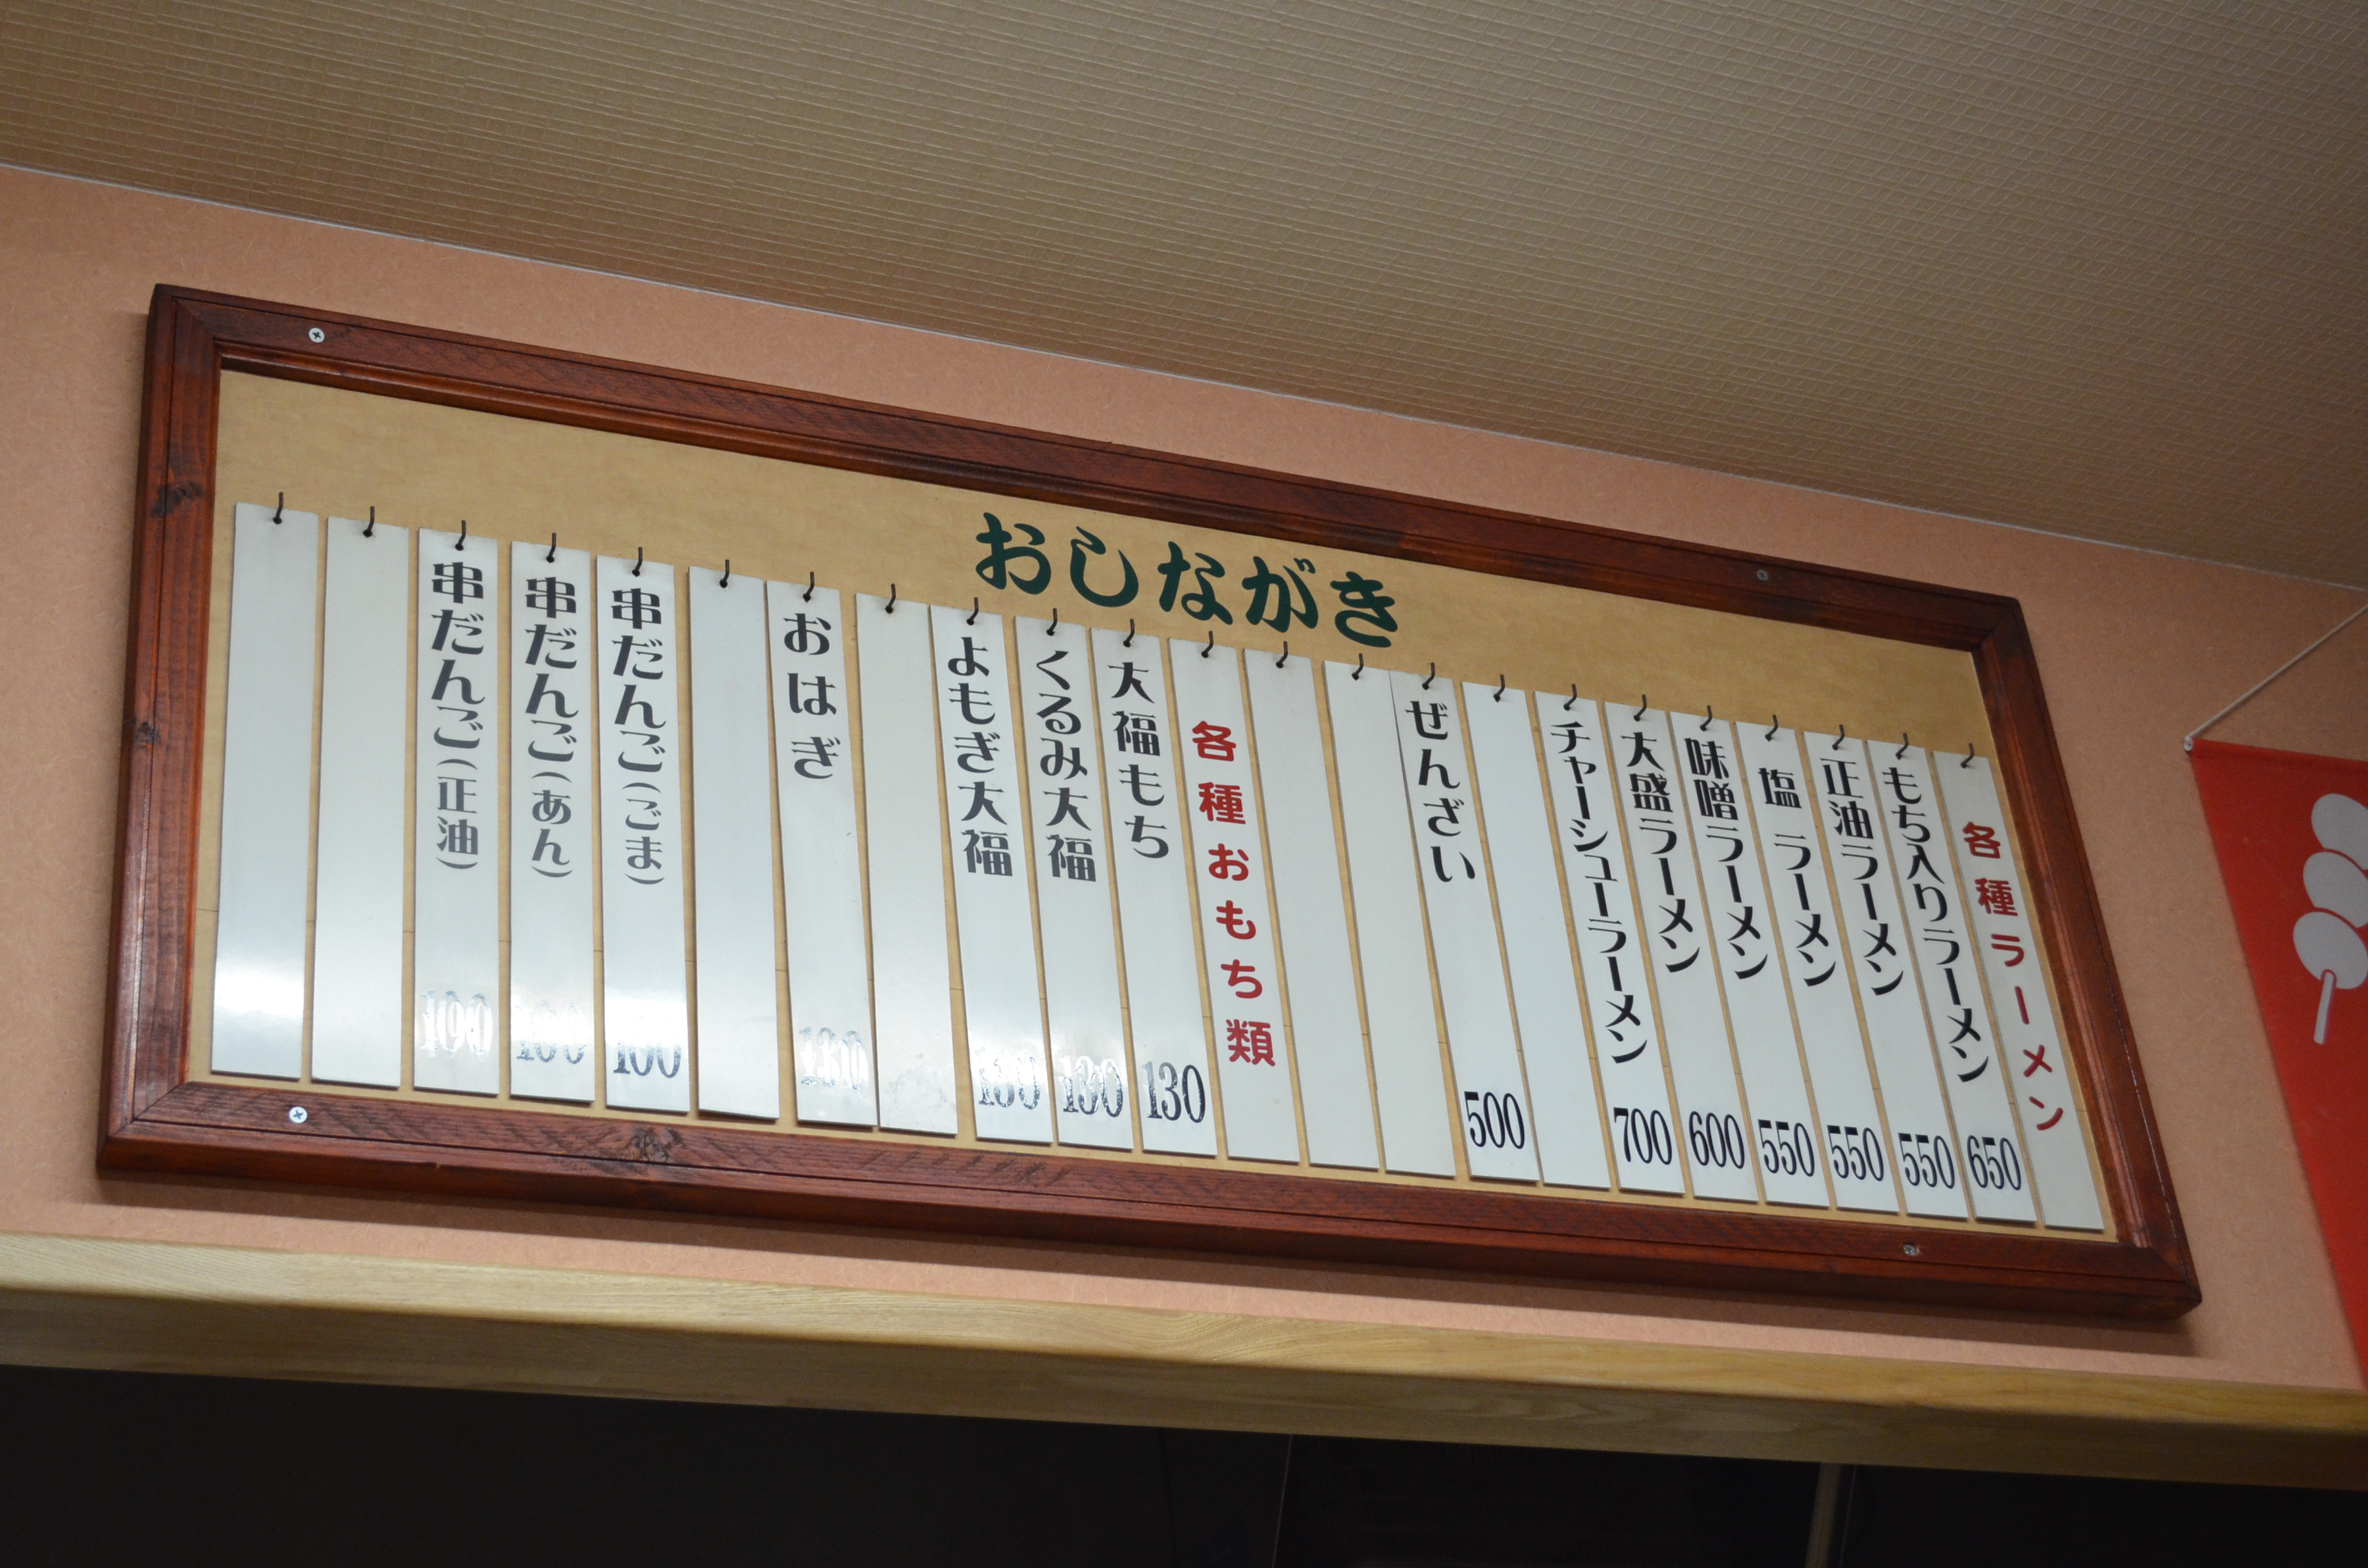 おしながき
各種ラーメン
もち入りラーメン 650
正油ラーメン 550
塩ラーメン 550
味噌ラーメン 550
大盛ラーメン 600
チャーシューラーメン 700
ぜんざい 500
各種おもち類
大福もち 130
くるみ大福 130
よもぎ大福 130
おはぎ 130
串だんご(ごま) 100
串だんご(あん) 100
串だんご(正油) 100